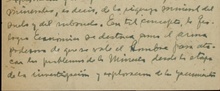 minerales, es decir, de la riqueza mineral del
suelo y del subsuelo. En tal concepto, la Geo-
logía Económica se destaca como el arma
poderosa de que se vale el hombre para ata-
car los problemas de la Minería desde la etapa
de la investigación y exploración de los yacimientos